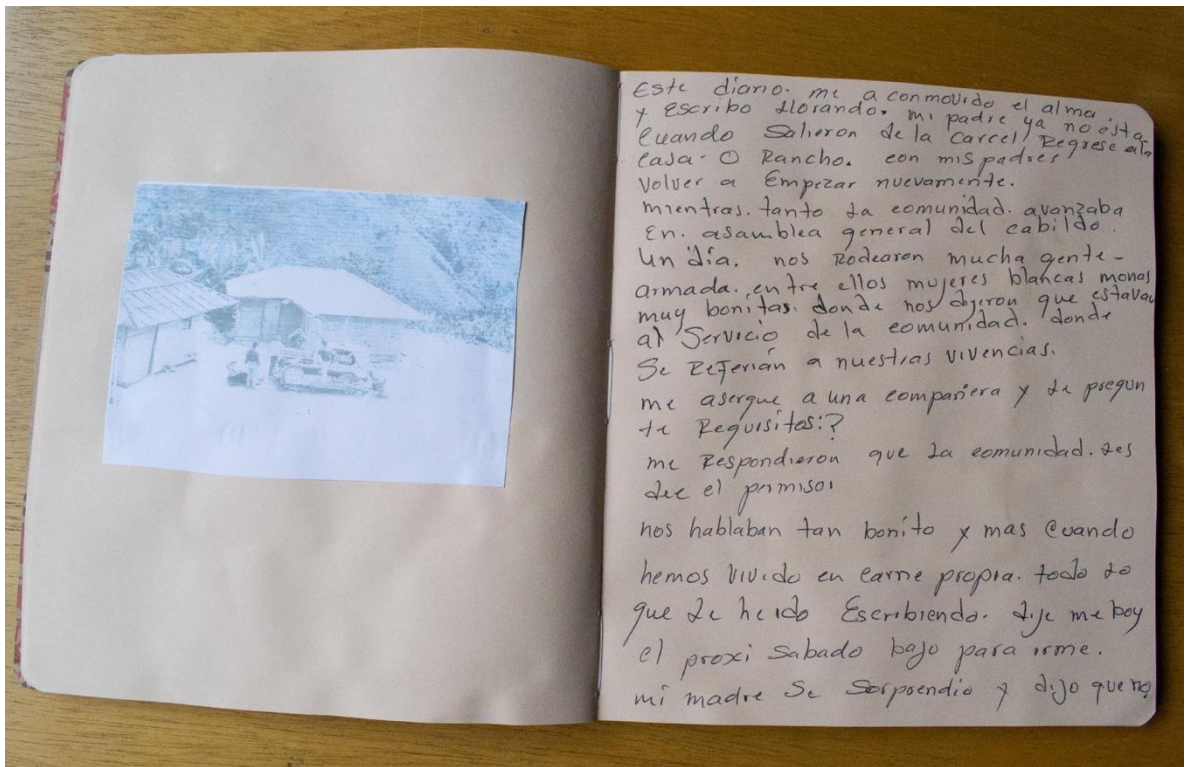 Este diario. me a conmovido el alma.
y escribo llorando. mi padre ya no esta
Cuando Salieron de la Carcel, Regrese ala
Casa. O Rancho. con mis padres
Volver a Empezar nuevamente.
mientras. tanto la comunidad. avanzaba
En. asamblea general del cabildo.
Un día. nos Rodearon mucha gente-
armada. entre ellos mujeres blancas monas
muy bonitas. donde nos dijeron que estavan
al Servicio de la comunidad. donde
Se Referián a nuestras vivencias.
me aserque a una compañera y le pregun
te Requisitos:?
me Respondieron que la comunidad. les
dee el permiso.
nos hablaban tan bonito y mas Cuando
hemos vivido en carne propia. todo lo
que le he ido Escribiendo. dije me boy
el proxi Sabado bajo para irme.
mi madre Se Sorprendio y dijo que no